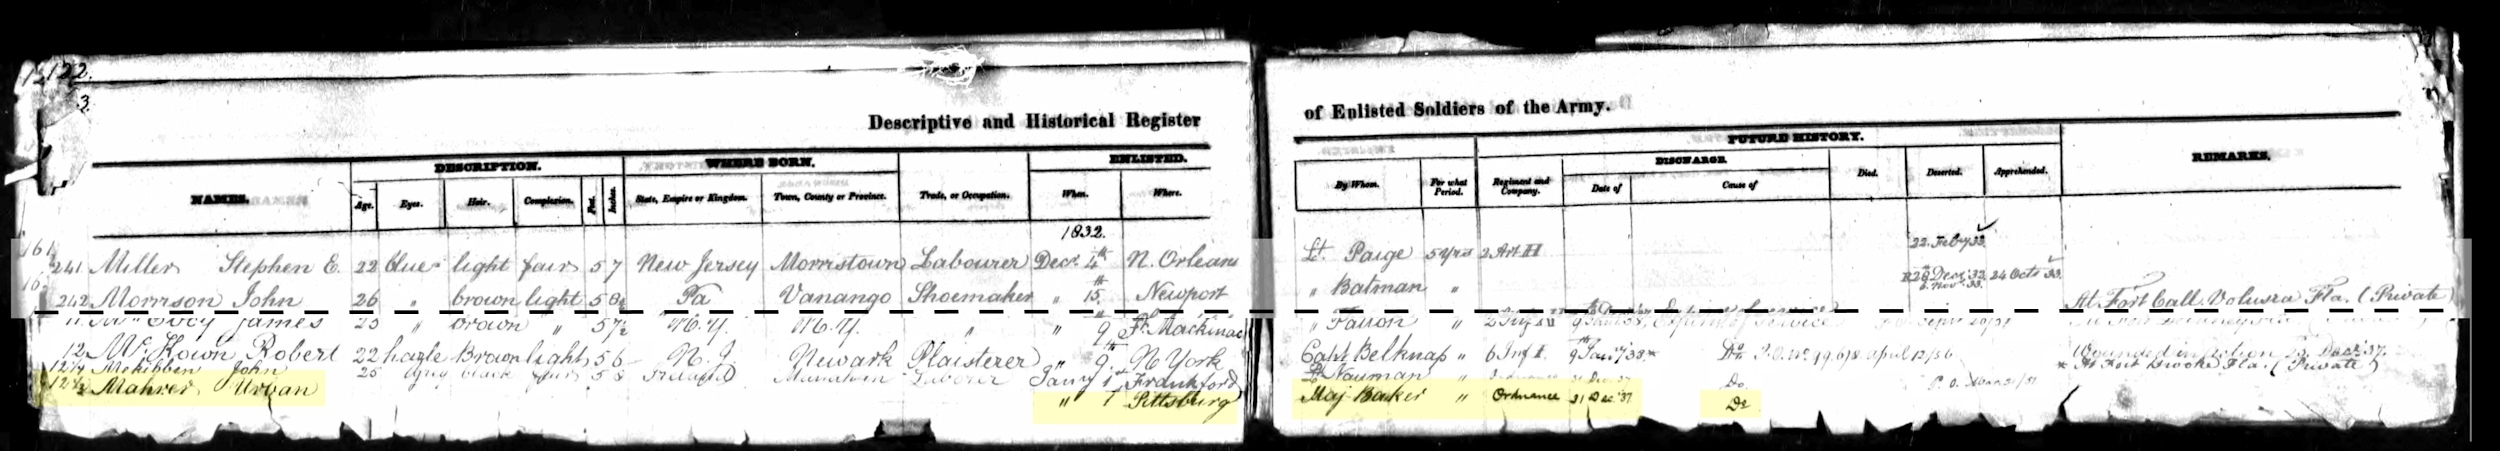 122.
3.
Descriptive and Historical Register of Enlisted Soldiers of the Army.
NAMES. DESCRIPTION. WHERE BORN. ENLISTED. FUTURE HISTORY. REMARKS.
DISCHARGE.
Age. Eyes. Hair. Complexion. Feet. Inches. State, Empire or Kingdom. Town, County or Province. Trade, or Occupation. When. Where. By Whom. For what Period. Regiment and Company. Date of Cause of Died. Deserted. Apprehended.
1832.
161 22. Feby 33
241 Miller Stephen E. 22 blue light fair 5 7 New Jersey Morristown Labourer Decr 4th N. Orleans Lt. Paige 5 yrs 2 Art H
242 Morrison John 26 " brown light 5 8½ Pa Vanango Shoemaker " 15th Newport " Batman " 28 Decr 32. 24 Octr 33.
6. Novr 33. At Fort Call Volusia Fla. (Private)
James 23 " brown " 5 7½ N.Y. N.Y. " " 9 Ft. Mackinac " " 2 Inf Expn of Service
12 McKown Robert 22 hazle Brown light 5 6 N. J. Newark Plaisterer " 9th N York Capt. Belknap " 6 Inf Jany 38 Do Wounded in action 25 Decr '37.
McKibben John 25 Grey black 5 8 Ireland Jany 1 Frankford Lt Nauman " Do At Fort Brooke Fla. (Private)
12½ Mahrer Urban " 1 Pittsburg Maj Baker " Ordnance 31 Dec '37 Do